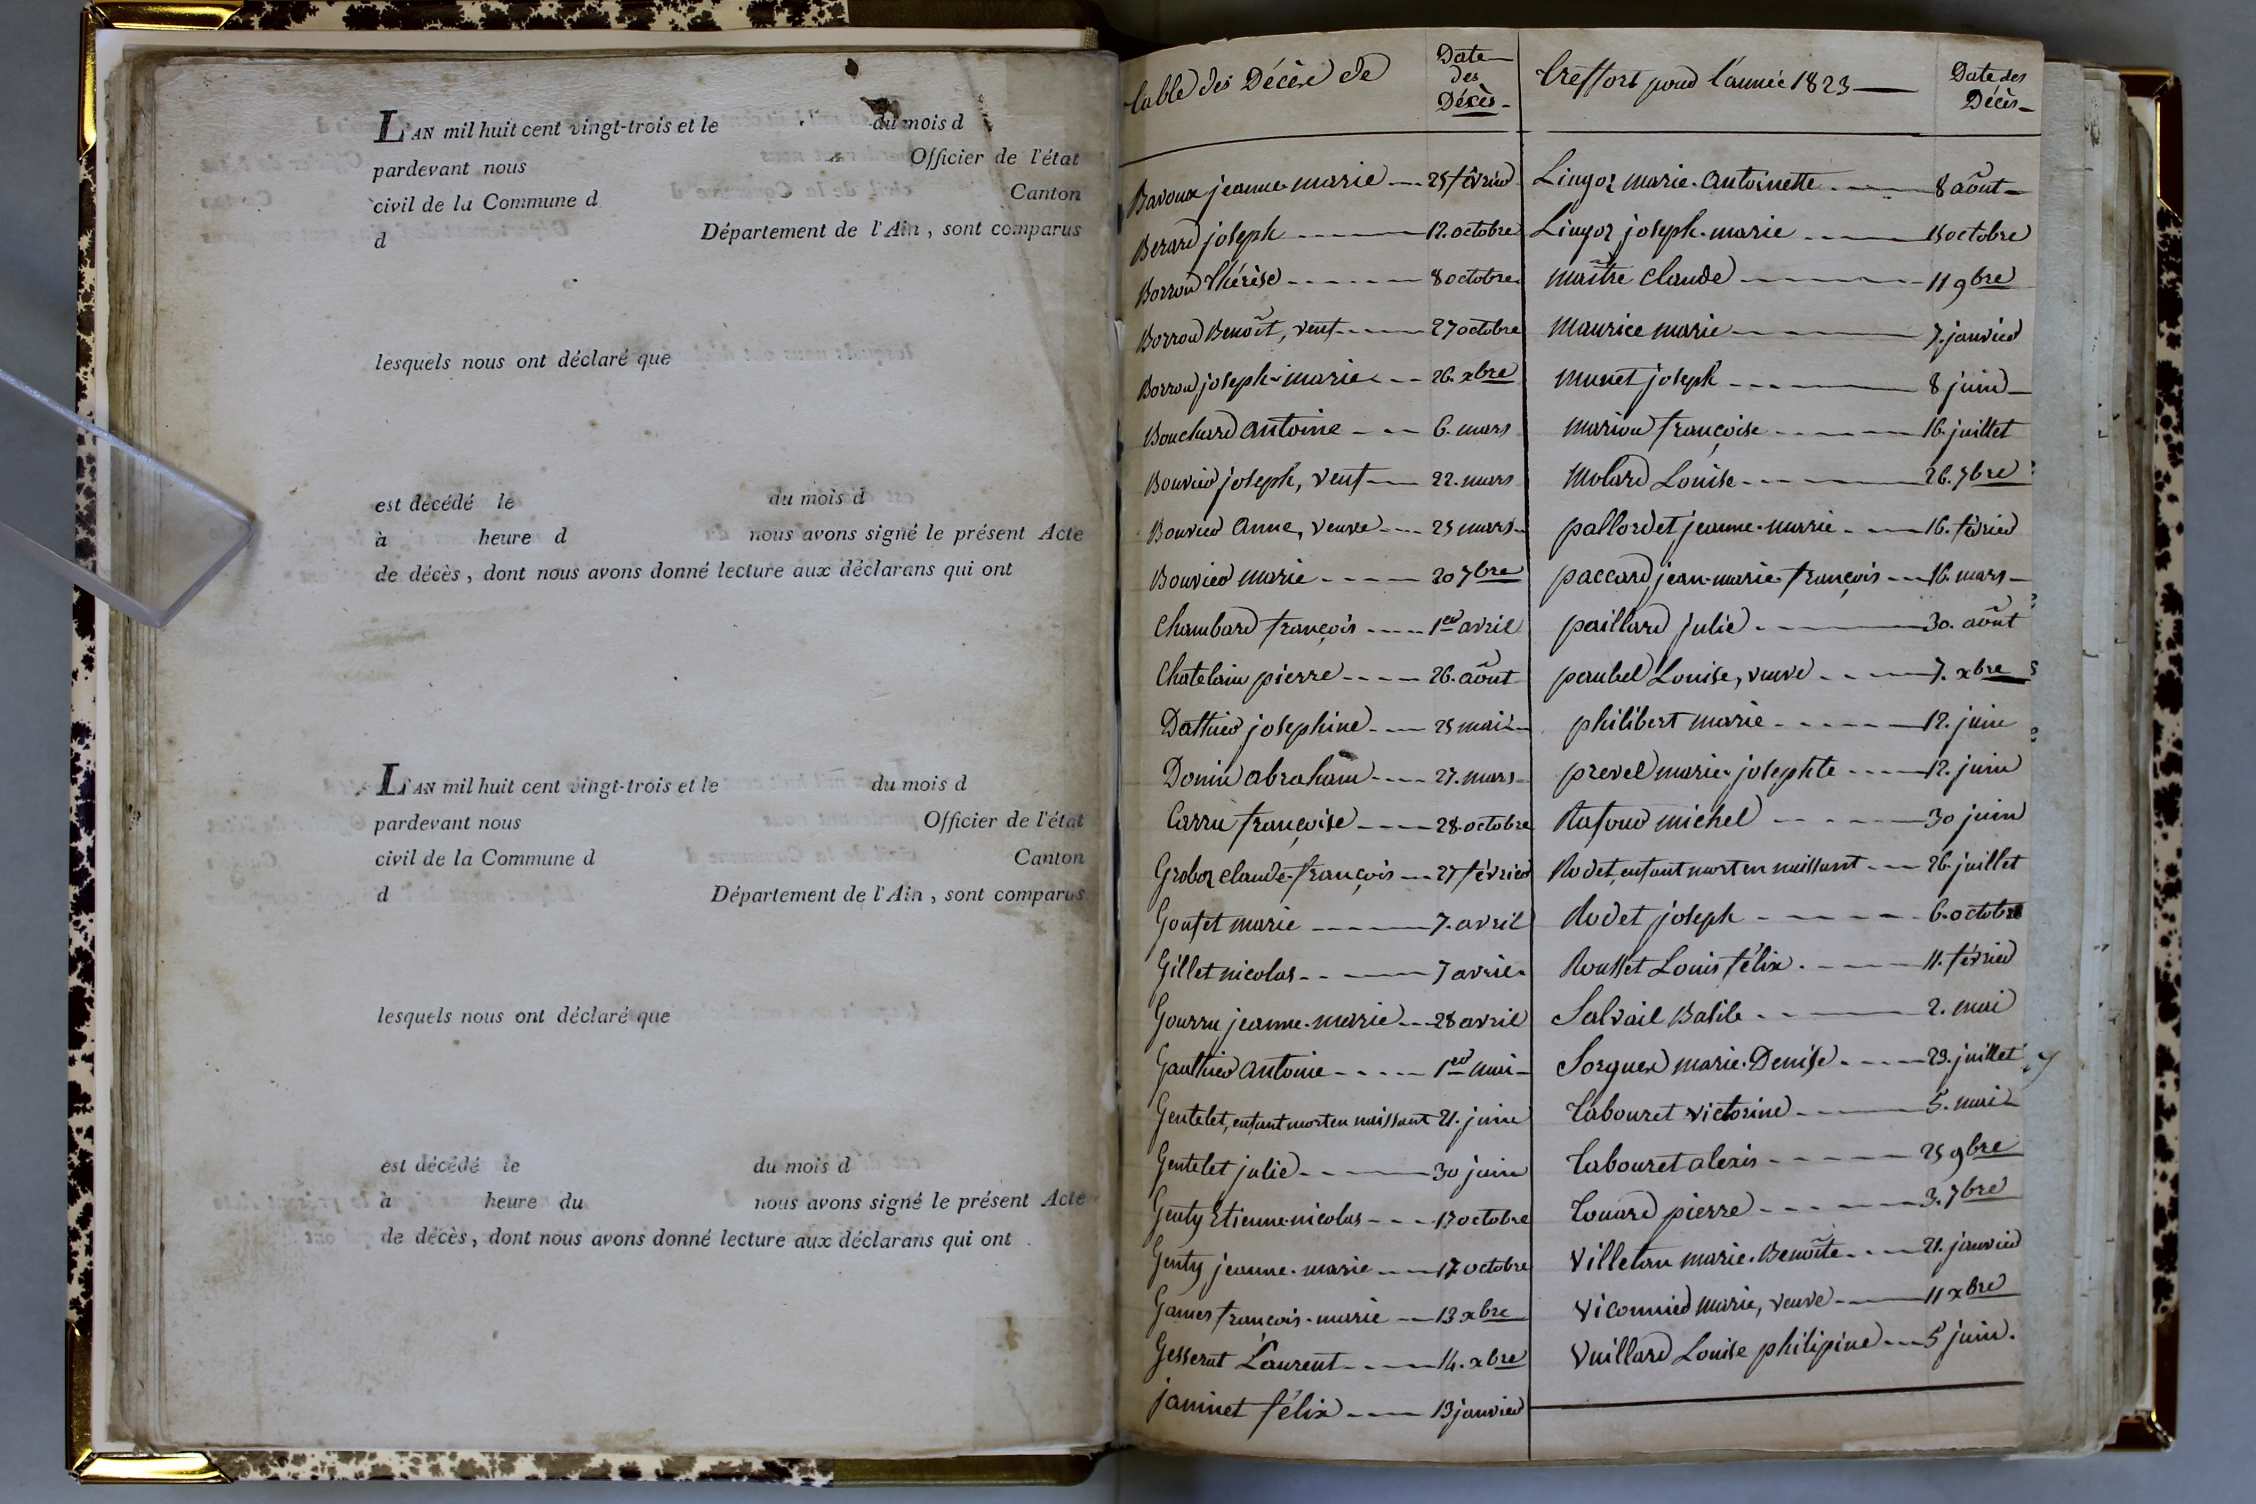 L'AN mil huit cent vingt-trois et le du mois d
pardevant nous Officier de l'état
civil de la Commune d Canton
d Département de l'Ain, sont comparus
lesquels nous ont déclaré que
est décédé le du mois d
à heure d nous avons signé le présent Acte
de décès, dont nous avons donné lecture aux déclarans qui ont
L'AN mil huit cent vingt-trois et le du mois d
pardevant nous Officier de l'état
civil de la Commune d Canton
d Département de l'Ain, sont comparus
lesquels nous ont déclaré que
est décédé le du mois d
à heure du nous avons signé le présent Acte
de décès, dont nous avons donné lecture aux déclarans qui ont
Table des Décès de
Date des Décès
Bavoux jeanne-marie 25 février
Berard joseph 12. octobre
Borron Thérèse 8 octobre
Borron Benoît, veuf 27 octobre
Borron joseph-marie 26. xbre
Bouchard antoine 6. mars
Bouvier joseph, veuf 22. mars
Bouvier anne, veuve 25 mars
Bouvier marie 20 7bre
Chambard françois 1er avril
Chatelain pierre 26. août
Dathier josephine 25 mai
Donin abraham 27. mars
Carru françoise 28. octobre
Groboz claude-françois 27 février
Goufet marie 7. avril
Gillet nicolas 7 avril
Gourru jeanne-marie 28 avril
Gauthier antoine 1er mai
Gentelet, enfant mort en naissant 21. juin
Gentelet julie 30 juin
Genty Etienne-nicolas 17 octobre
Genty jeanne-marie 17. octobre
Games françois-marie 13 xbre
Gesserat Laurent 14. xbre
janinet félix 13 janvier
Treffort pour l'année 1823
Date des Décès
Lingoz marie-antoinette 8 août
Lingoz joseph-marie 15 octobre
maître claude 11 9bre
maurice marie 7. janvier
munet joseph 8 juin
marion françoise 16. juillet
Molard Louise 26. 7bre
pallordet jeanne-marie 16. février
paccard jean-marie-françois 16. mars
paillard julie 30. août
paubel Louise, veuve 7. xbre
philibert marie 12. juin
prevel marie-josephte 12. juin
Rafour michel 30 juin
Rodet, enfant mort en naissant 26. juillet
Rodet joseph 6. octobre
Rousset Louis félix 11. février
Salvail Basile 2. mai
Sorguex marie-Denise 23. juillet
Tabouret victorine 5. mai
Tabouret alexis 25 9bre
Touard pierre 3. 7bre
Villetan marie-Benoîte 21. janvier
Viconnier marie, veuve 11 xbre
Vuillard Louise philipine 5 juin.